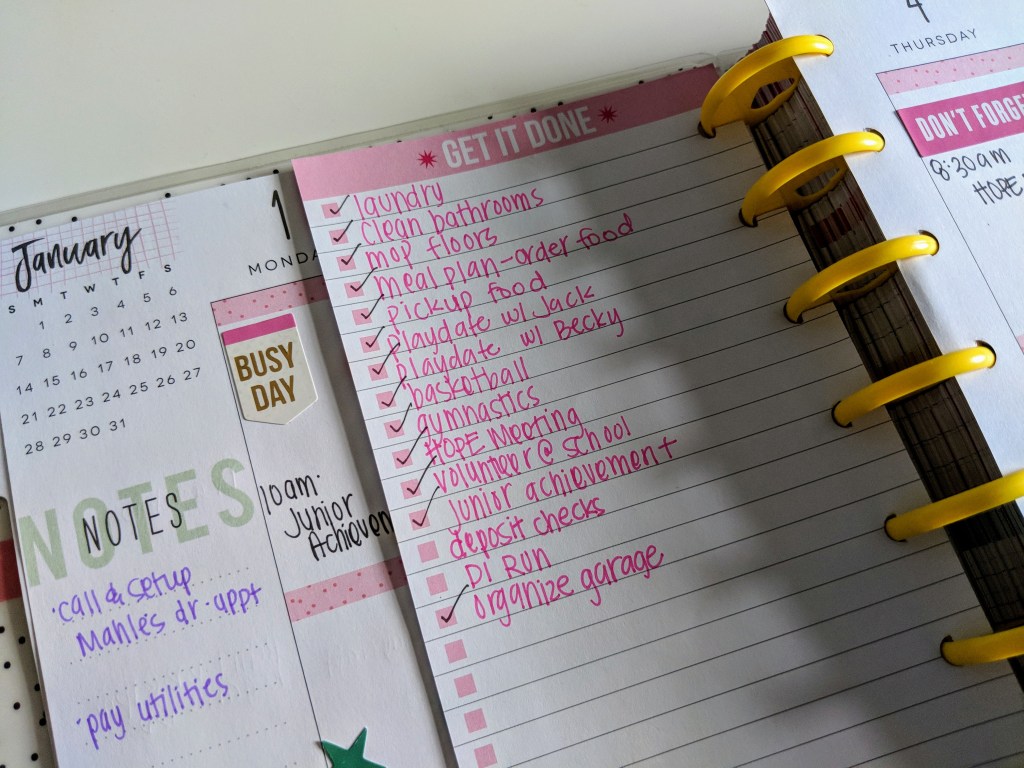 January
S M T W T F S
1 2 3 4 5 6
7 8 9 10 11 12 13
14 15 16 17 18 19 20
21 22 23 24 25 26 27
28 29 30 31
NOTES
NOTES
·call & setup
Mahles dr. appt
·pay utilities
1
MONDA
BUSY
DAY
10am.
Junior
Achievem
GET IT DONE
laundry
clean bathrooms
mop floors
meal plan - order food
pickup food
playdate w/ Jack
playdate w/ Becky
basketball
gymnastics
HOPE Meeting
volunteer @ school
junior achievement
deposit checks
DI RUN
organize garage
4
THURSDAY
DON'T FORGE
8:30am
HOPE